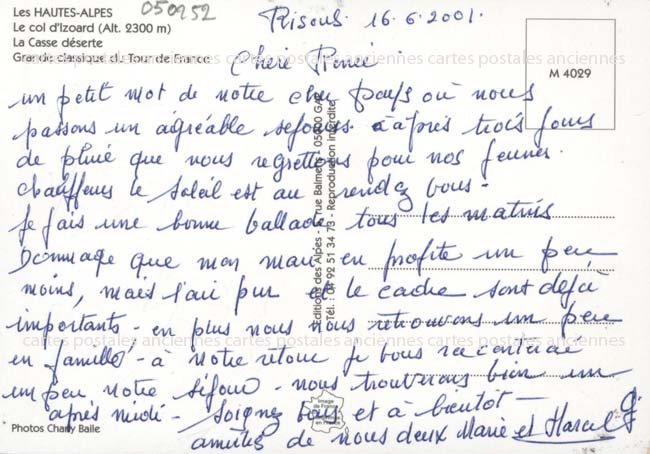 Les HAUTES-ALPES
Le col d'Izoard (Alt. 2300 m)
La Casse déserte
Grande classique du Tour de France
050952
Risoul. 16.6.2001.
M 4029
Chère
un petit mot de notre cher pays où nous
passons un agréable séjour. après trois jours
de pluie que nous regrettions pour nos jeunes.
chauffeurs le soleil est au rendez vous -
Je fais une bonne ballade tous les matins
Dommage que mon mari en profite un peu
moins, mais l'air pur et le cadre sont déjà
importants - en plus nous nous retrouvons un peu
en famille - à notre retour je vous raconterai
un peu notre séjour - nous trouverons bien un
après midi - Soignez vous et à bientôt -
amitiés de nous deux Marie et Marcel
Photos Charly Baile
Editions des Alpes - rue Balmens - 05000 GAP
Tél. : 04 92 51 34 73 - Reproduction interdite
Image de France
en France
cartes postales anciennes cartes postales anciennes cartes postales anciennes
cartes postales anciennes cartes postales anciennes cartes postales anciennes